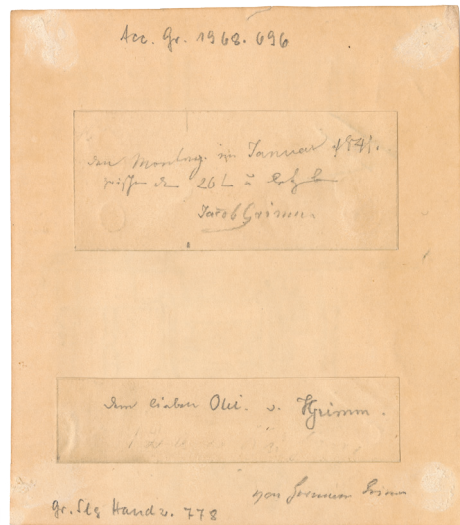 Acc. Gr. 1968.696
den Montag im Januar 1841.
zwischen dem 26t u
Jacob Grimm.
dem lieben Ohi. v. HGrimm.
von Herman Grimm
Gr. Slg Handz. 778